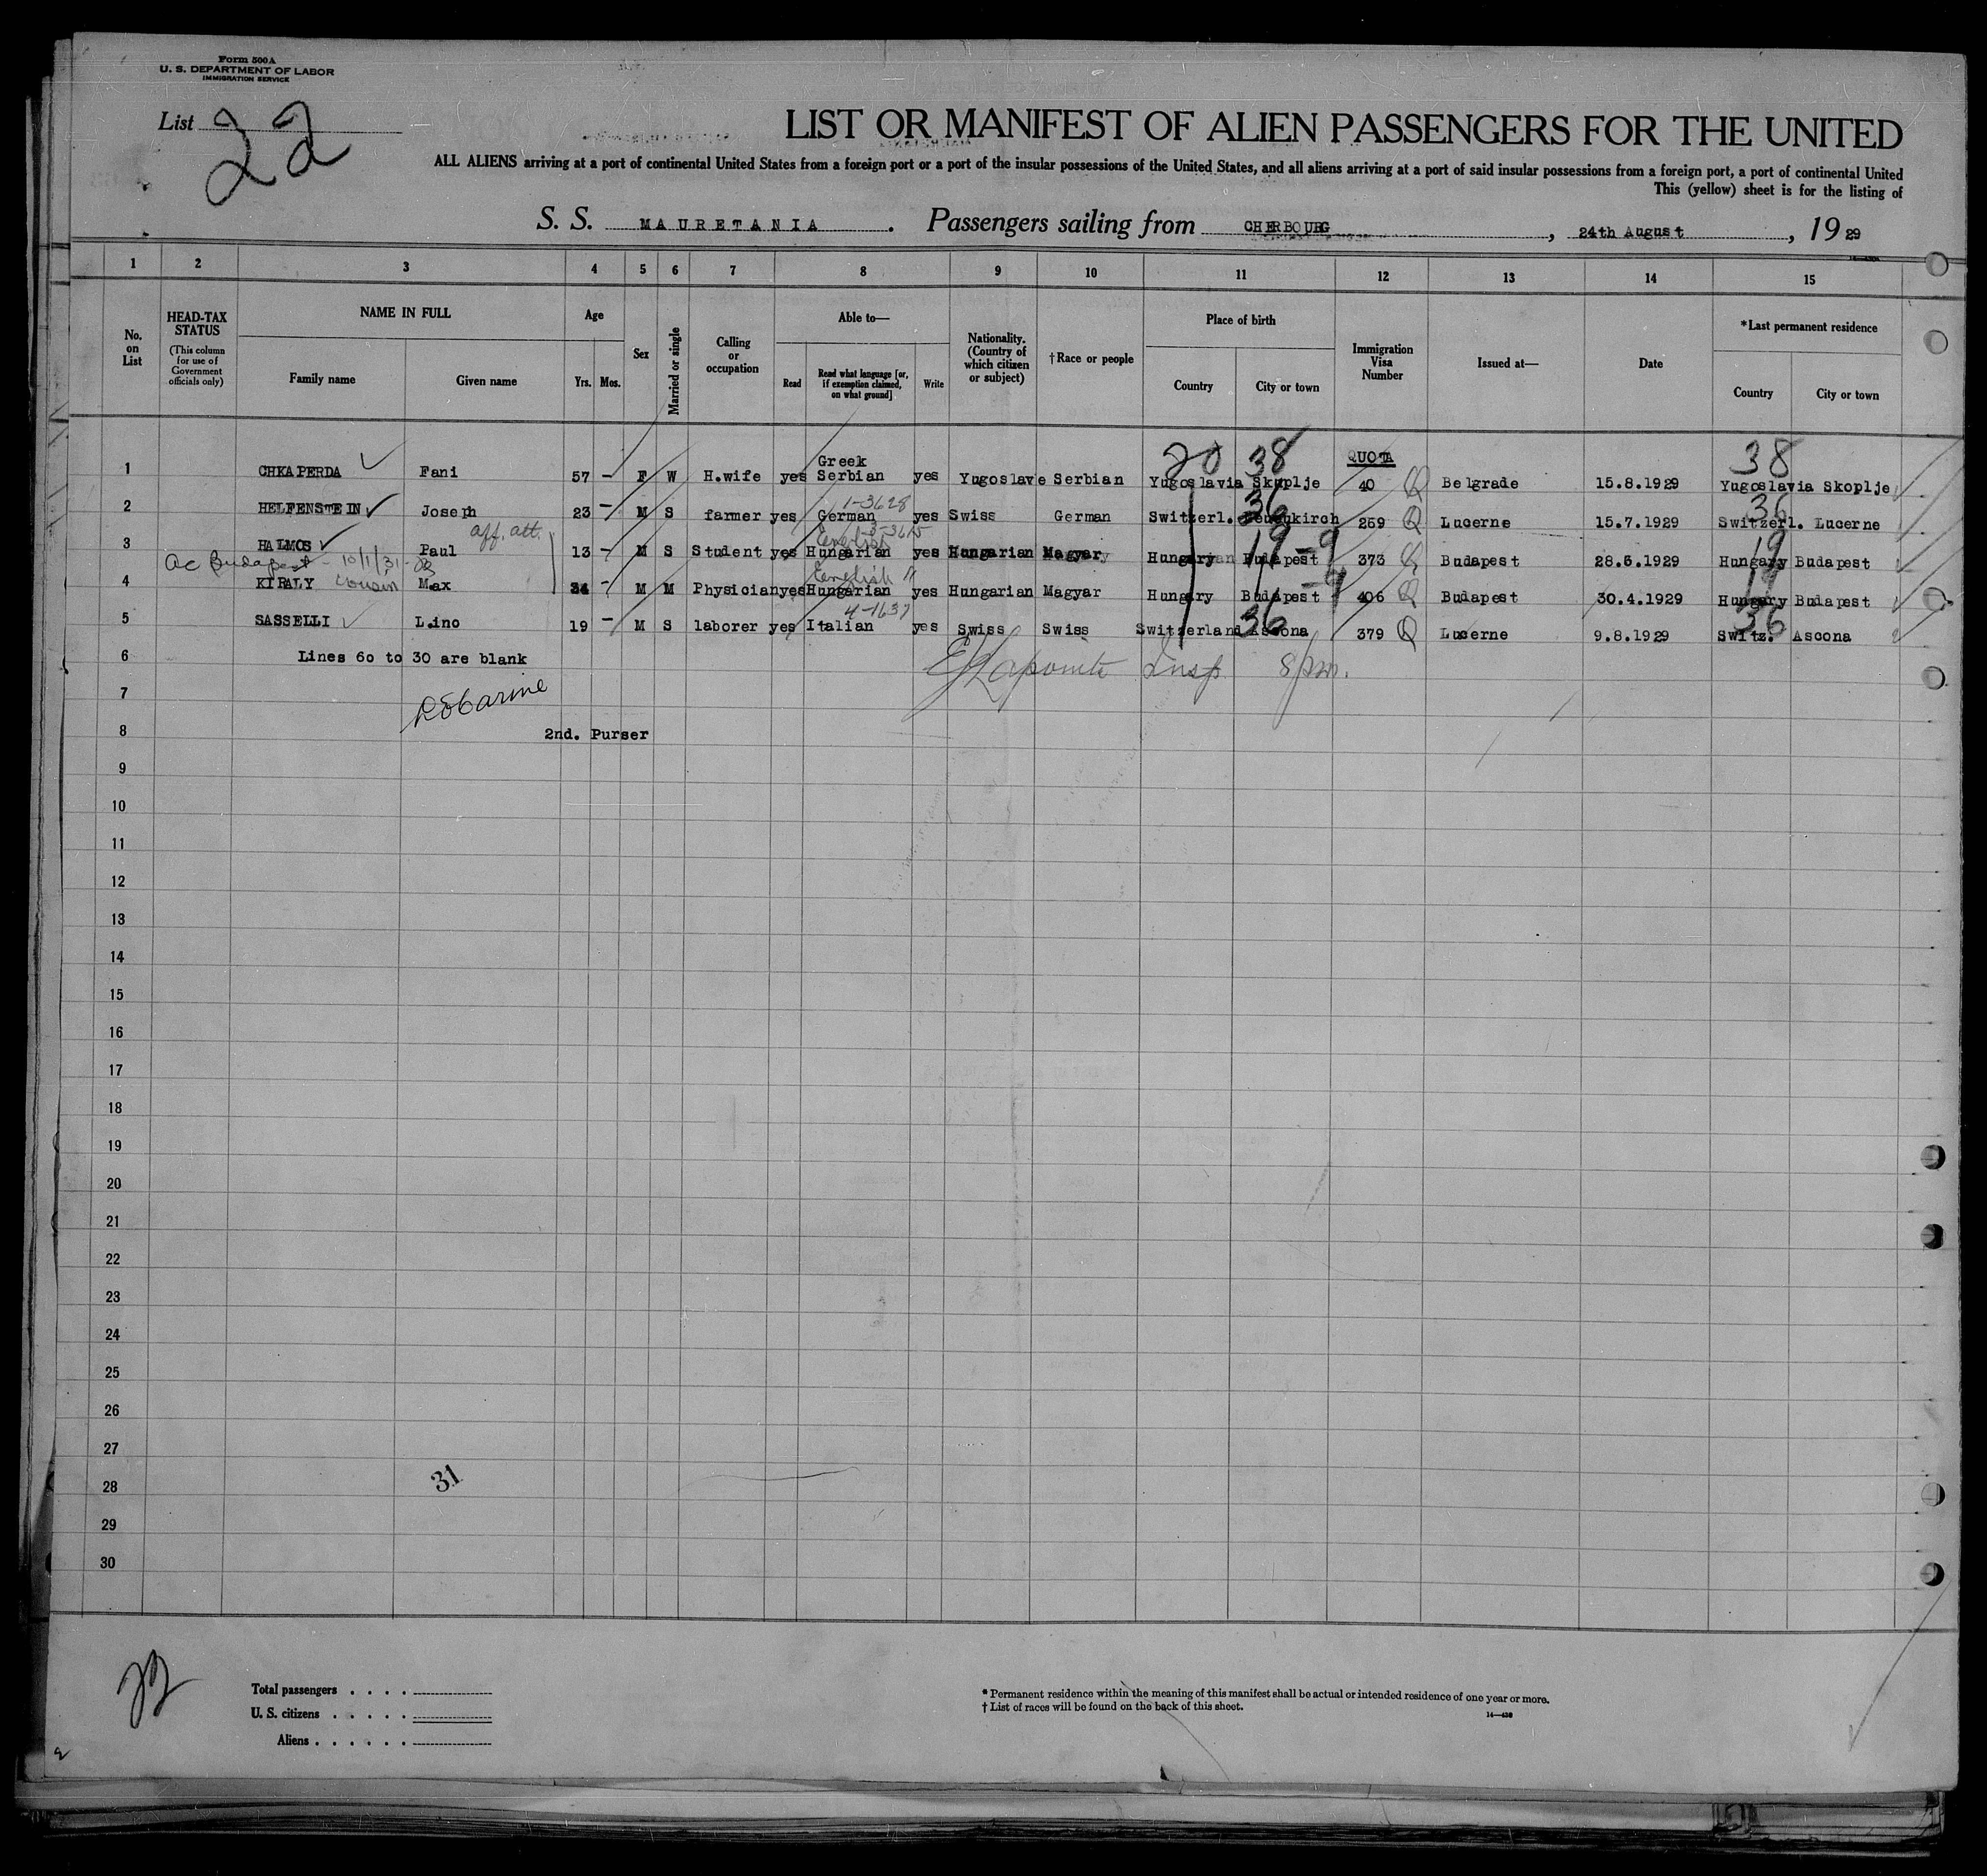 Form 500A
U. S. DEPARTMENT OF LABOR
IMMIGRATION SERVICE
List 22
LIST OR MANIFEST OF ALIEN PASSENGERS FOR THE UNITED
ALL ALIENS arriving at a port of continental United States from a foreign port or a port of the insular possessions of the United States, and all aliens arriving at a port of said insular possessions from a foreign port, a port of continental United
This (yellow) sheet is for the listing of
S. S. MAURETANIA. Passengers sailing from CHERBOURG, 24th August, 19 29
1 2 3 4 5 6 7 8 9 10 11 12 13 14 15
No. on List
HEAD-TAX STATUS
(This column for use of Government officials only)
NAME IN FULL
Family name
Given name
Age
Yrs. Mos.
Sex
Married or single
Calling or occupation
Able to—
Read
Read what language [or, if exemption claimed, on what ground]
Write
Nationality. (Country of which citizen or subject)
†Race or people
Place of birth
Country
City or town
Immigration Visa Number
Issued at—
Date
*Last permanent residence
Country
City or town
20 38 QUOTA 38
Greek
1 CHKAPERDA Fani 57 - F W H.wife yes Serbian yes Yugoslave Serbian Yugoslavia Skoplje 40 Q Belgrade 15.8.1929 Yugoslavia Skoplje
1-3628 36 36
2 HELFENSTEIN Joseph 23 - M S farmer yes German yes Swiss German Switzerl. 259 Q Lucerne 15.7.1929 Switzerl. Lucerne
aff. att. English 19 - 9 19
3 HALMOS Paul 13 - M S Student yes Hungarian yes Hungarian Magyar Hungary Budapest 373 Q Budapest 28.5.1929 Hungary Budapest
ac Budapest - 10/1/31
English 19
4 KIRALY cousin Max 34 - M M Physician yes Hungarian yes Hungarian Magyar Hungary Budapest 406 Q Budapest 30.4.1929 Hungary Budapest
4-1637 36 36
5 SASSELLI Lino 19 - M S laborer yes Italian yes Swiss Swiss Switzerland Ascona 379 Q Lucerne 9.8.1929 Switz. Ascona
6 Lines 6o to 30 are blank
Insp
7
8 2nd. Purser
9
10
11
12
13
14
15
16
17
18
19
20
21
22
23
24
25
26
27
28 31
29
30
Total passengers . . . .
U. S. citizens . . . . .
Aliens . . . . . .
* Permanent residence within the meaning of this manifest shall be actual or intended residence of one year or more.
† List of races will be found on the back of this sheet.